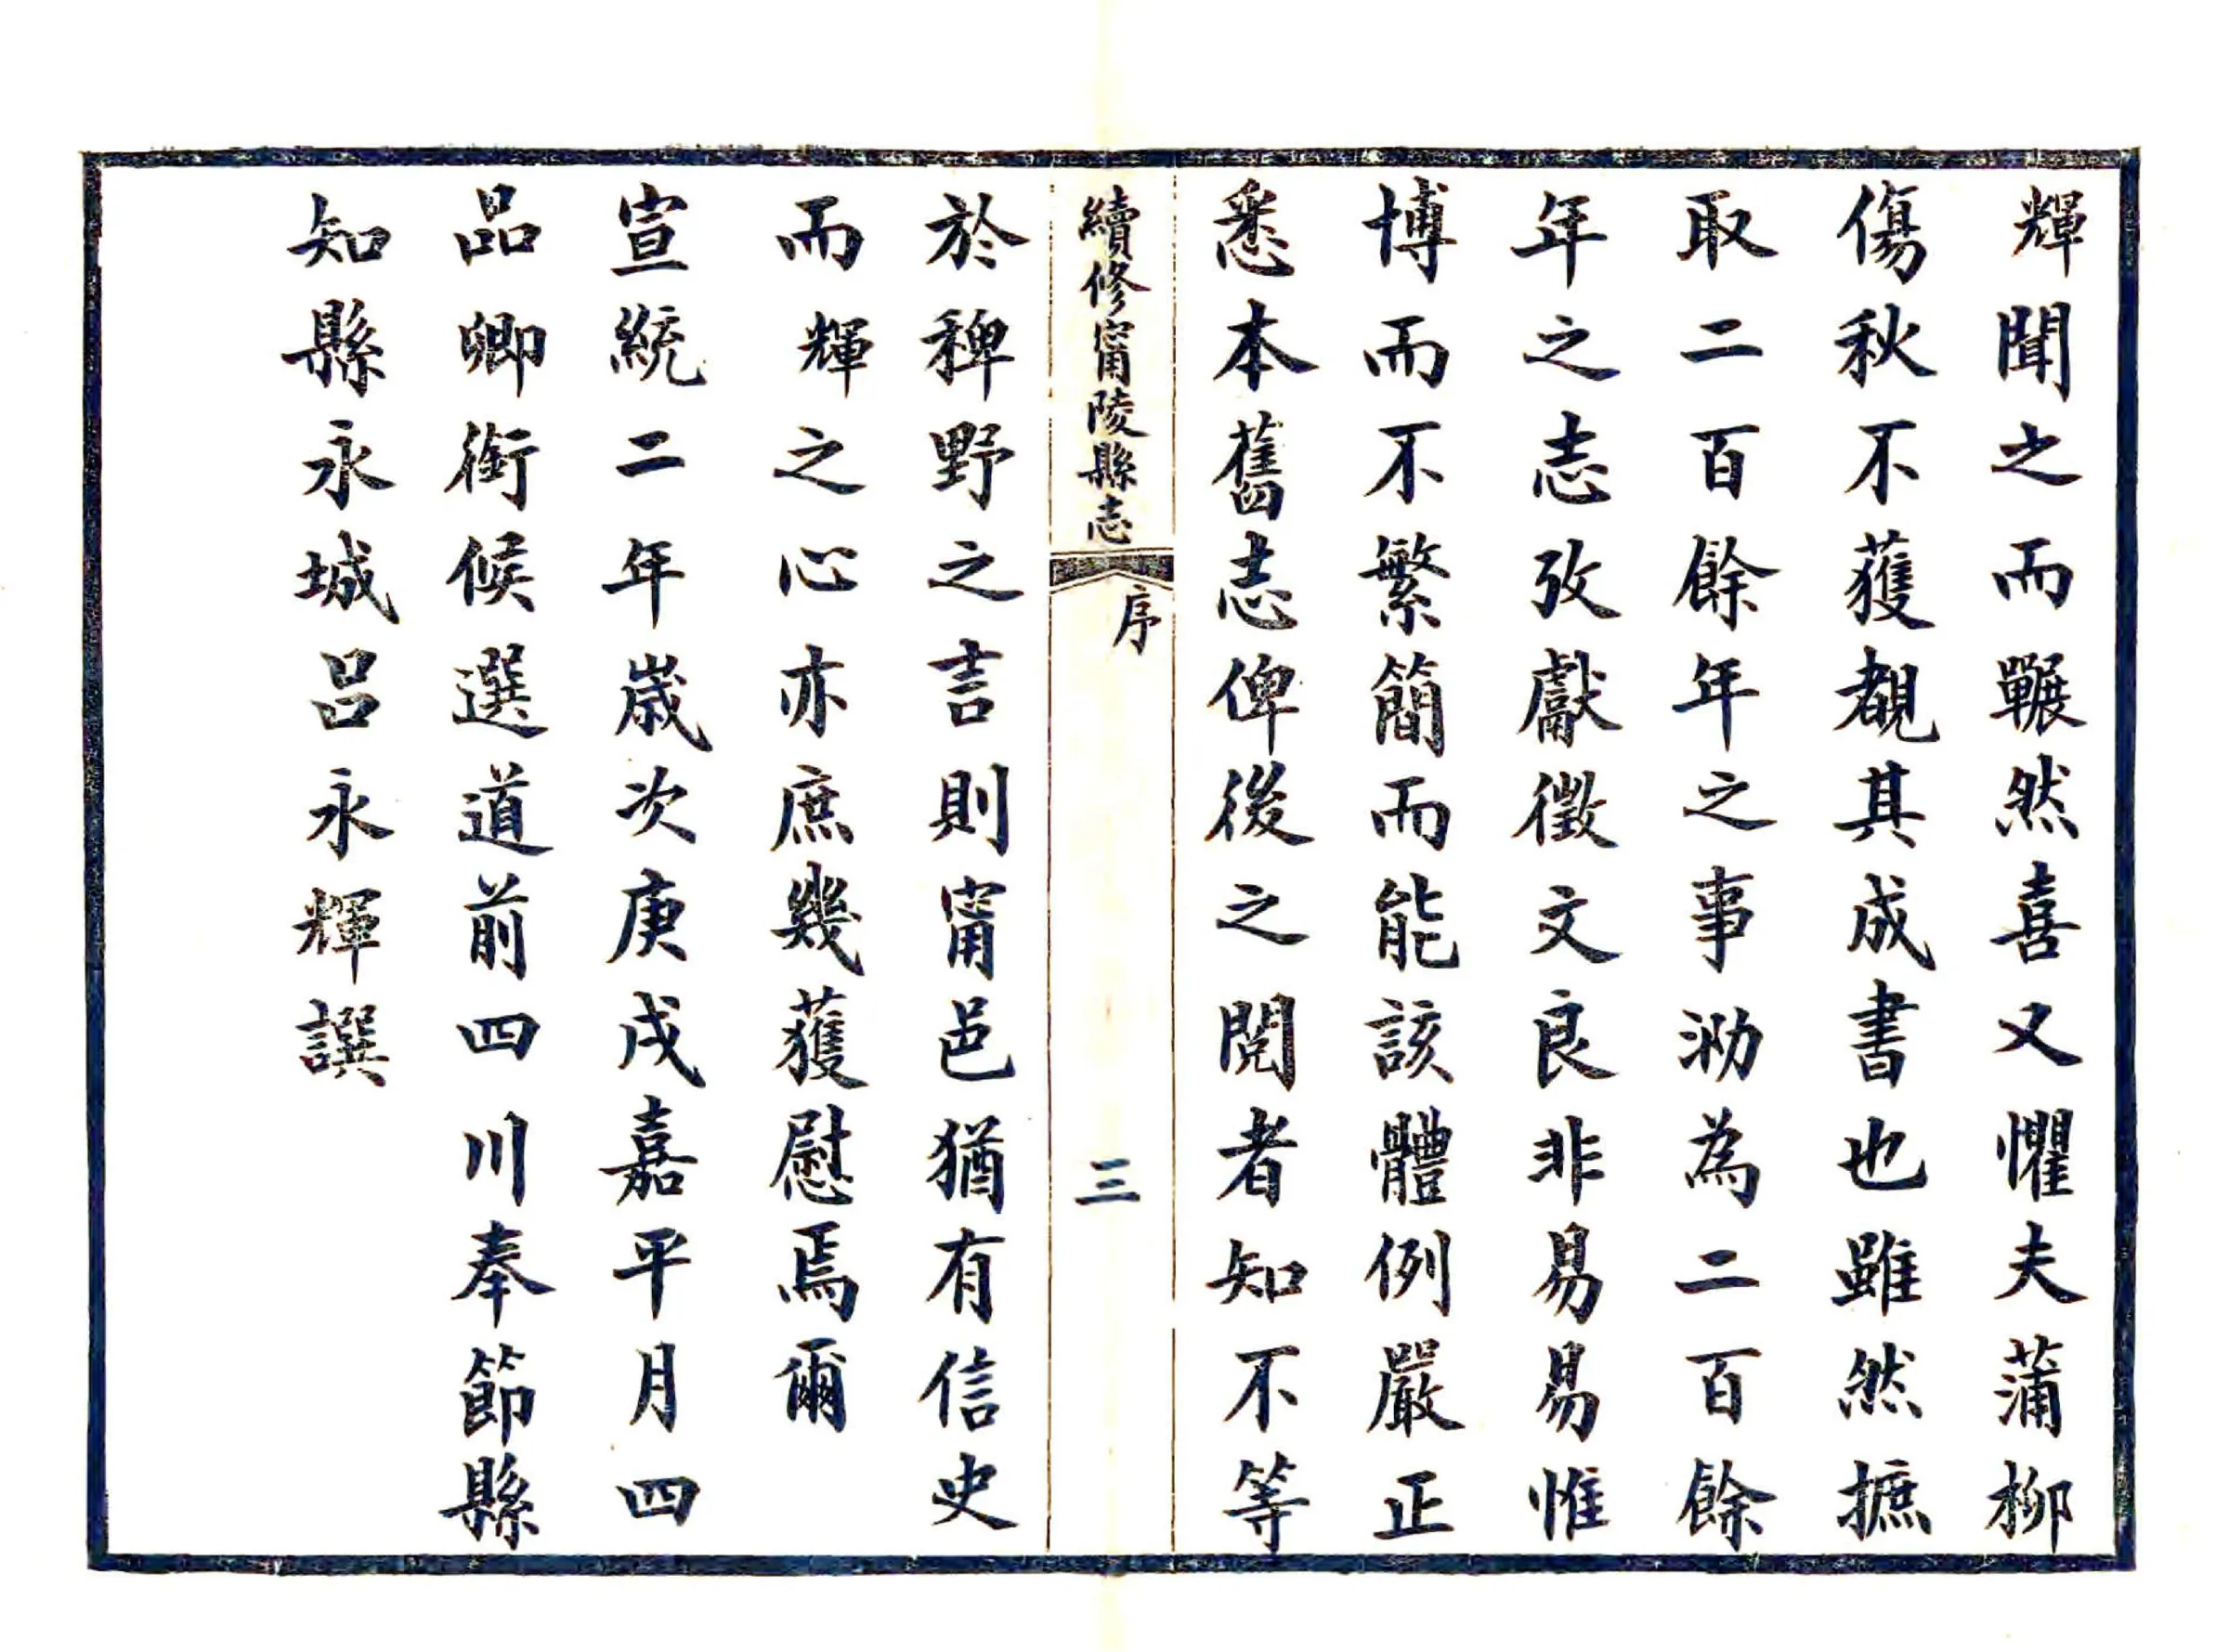 輝聞之而囅然喜又懼夫蒲柳
傷秋不獲覩其成書也雖然摭
取二百餘年之事泐為二百餘
年之志攷獻徵文良非易易惟
博而不繁簡而能該體例嚴正
悉本舊志俾後之閱者知不等
續修甯陵縣志
序
三
於稗野之言則甯邑猶有信史
而輝之心亦庶幾獲慰焉爾
宣統二年歲次庚戌嘉平月四
品卿銜候選道前四川奉節縣
知縣永城呂永輝譔